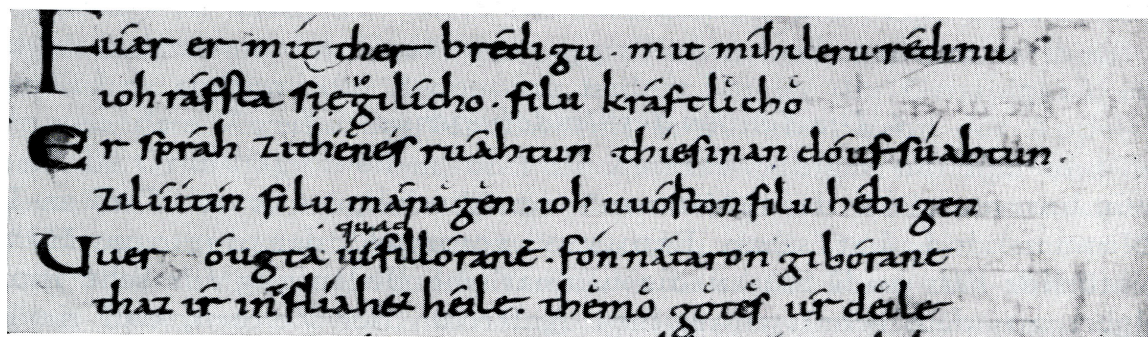 Fúar er mit ther brédigu · mit míhileru rédinu ·
io
ioh ráfsta sie gilícho · filu kráftlicho
Er spráh zithénes rúahtun · thiesinan dóuf súahtun ·
ziliútin filu mánagen · ioh uuóston filu hébigen
quad
Vuer óugta iu fillórane · fón nátaron gibórane
thaz ír héile · themo gótes úrdeile